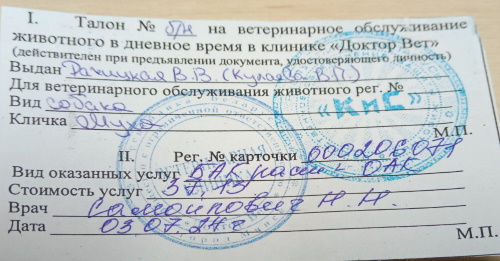 I. Талон № б/н на ветеринарное обслуживание
животного в дневное время в клинике «Доктор Вет»
(действителен при предъявлении документа, удостоверяющего личность)
Выдан В.В. (В.П.)
Для ветеринарного обслуживания животного рег. №
Вид собака
Кличка Мука
М.П.
«КиС»
II. Рег. № карточки 000206071
Вид оказанных услуг БАК расш + ОАК
Стоимость услуг 57-13
Врач Самойлович Н.Н.
Дата 03.07.24г
М.П.